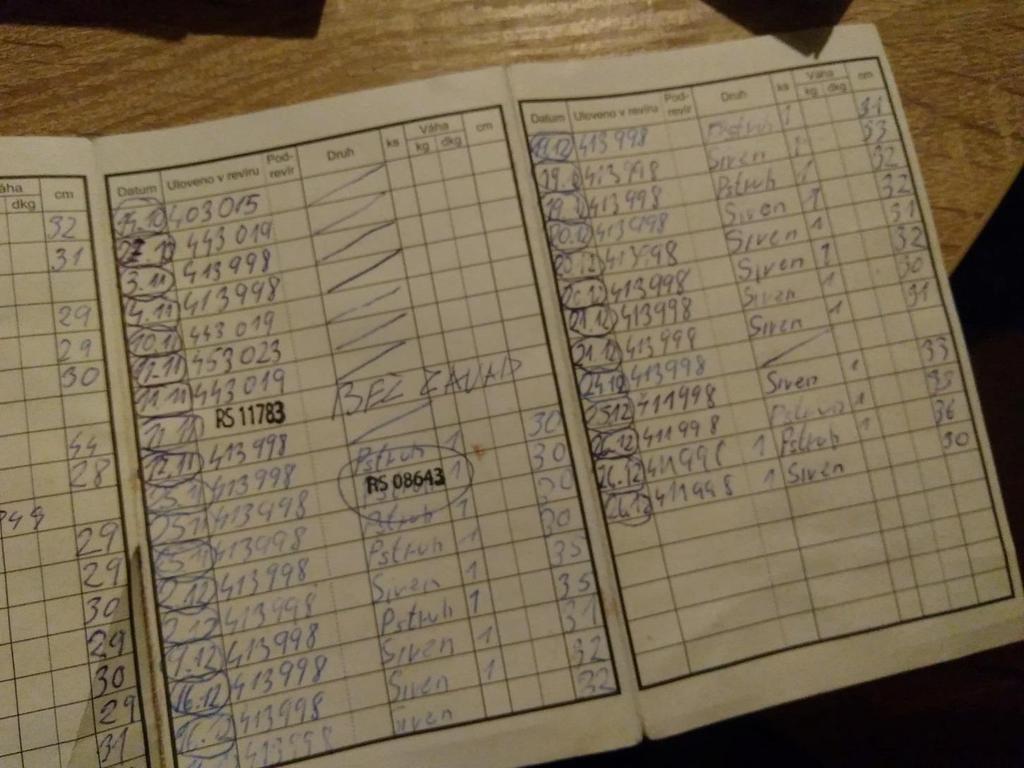 áha
dkg cm
32
31
29
29
30
44
28
29
29
30
29
30
29
31
Datum Uloveno v revíru Pod-revír Druh ks Váha kg dkg cm
403015
443 019
3.11 413998
4.11 413998
10.11 443 019
11.11 453023
11.11 443019
RS 11783 BEZ ZÁVAD
12.11 413998
25.11 413998 Pstruh 1 30
25.11 413998 RS 08643 1 30
25.11 413998 Pstruh 1 30
2.12 413998 Pstruh 1 30
2.12 413998 Siven 1 35
9.12 413998 Pstruh 1 35
16.12 413998 Siven 1 31
413998 Siven 1 32
413998 Siven 32
Datum Uloveno v revíru Pod-revír Druh ks Váha kg dkg cm
413998 Pstruh 1 31
413998 Siven 33
413998 Pstruh 1 32
413998 Siven 1 32
413998 Siven 1 31
413998 Siven 1 32
21.12 413998 Siven 1 30
21.12 413998 Siven 1 31
24.12 413998
25.12 411998 Siven 33
26.12 411998 1 35
26.12 411998 1 Pstruh 1 36
26.12 411998 1 Siven 30